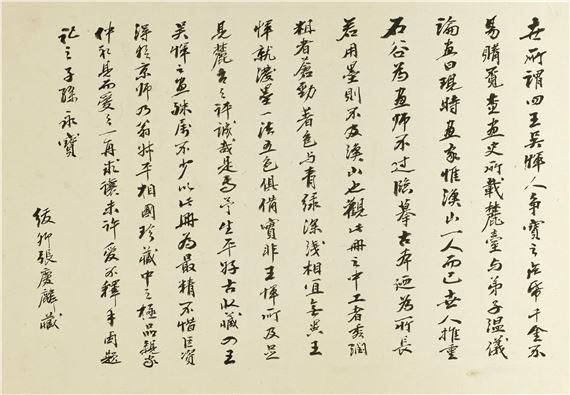 世所謂四王吳惲人爭寶之出幣千金不
易購覓查畫史所載麓臺与弟子溫儀
論畫曰現時畫家惟漁山一人而已世人推重
石谷為畫師不过臨摹古本迺為所長
若用墨則不及漁山也觀此冊之中工者秀潤
粗者蒼勁著色与青綠深淺相宜無異王
惲就潑墨一法五色俱備實非王惲所及足
見麓臺之評誠哉是焉予生平好古收藏四王
吳惲之畫殊屬不少以此冊為最精不惜巨資
得於京師乃翁叔平相國珍藏中之極品親家
仲和見而愛之一再求讓未許愛不釋手因題
記之子孫永寶
綬卿張慶麟藏